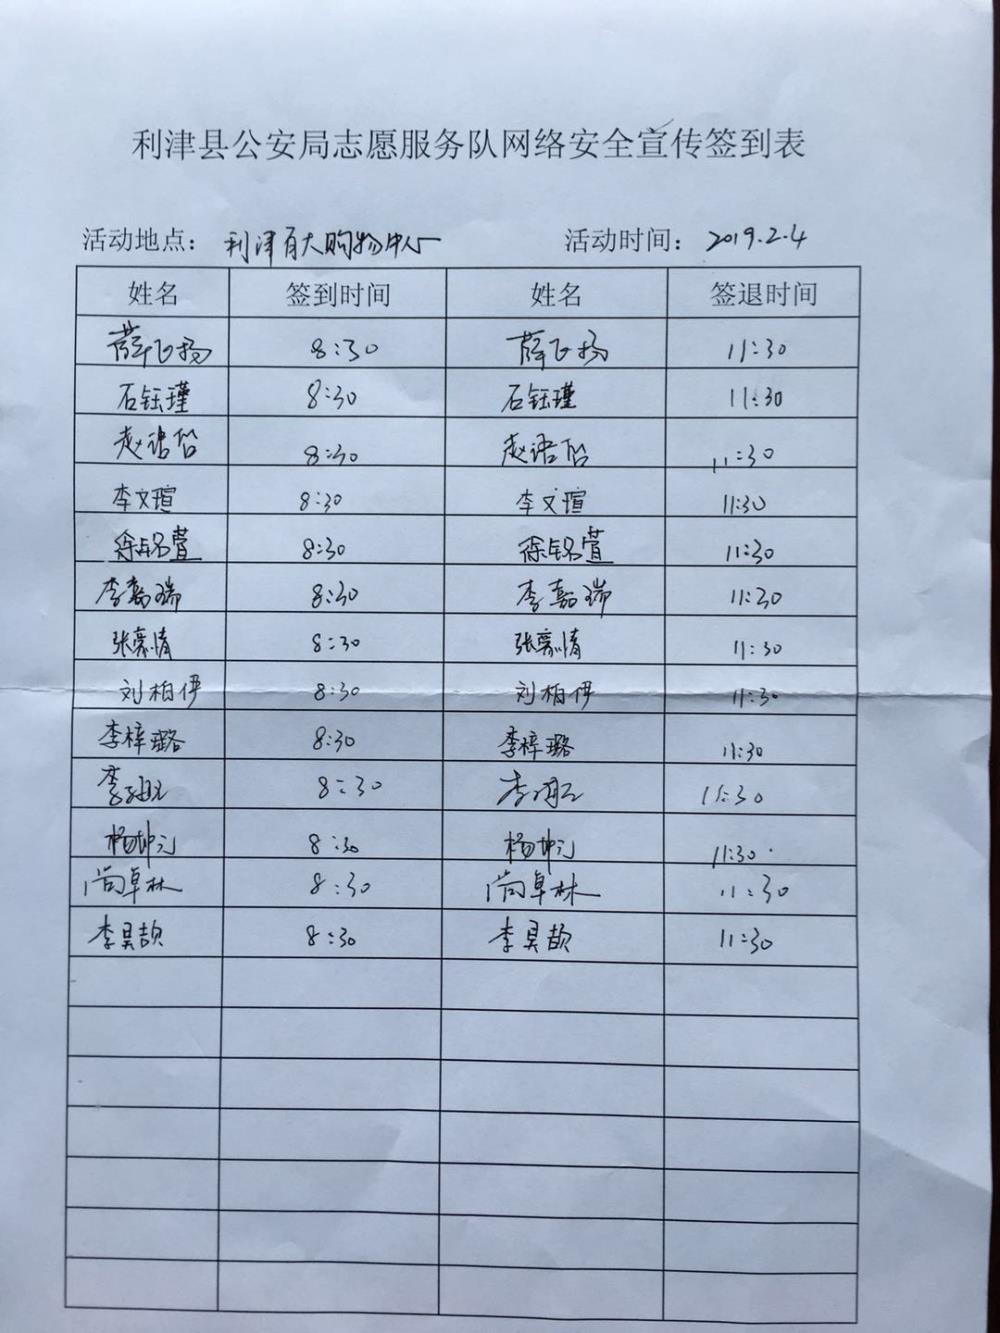 利津县公安局志愿服务队网络安全宣传签到表
活动地点： 利津百大购物中心 活动时间： 2019.2.4
姓名 签到时间 姓名 签退时间
薛飞扬 8:30 薛飞扬 11:30
石钰瑾 8:30 石钰瑾 11:30
赵诺 8:30 赵诺 11:30
李文瑄 8:30 李文瑄 11:30
徐铭萱 8:30 徐铭萱 11:30
李嘉瑞 8:30 李嘉瑞 11:30
张慕情 8:30 张慕情 11:30
刘柏伊 8:30 刘柏伊 11:30
李梓璐 8:30 李梓璐 11:30
李 8:30 李 11:30
杨坤 8:30 杨坤 11:30
尚卓林 8:30 尚卓林 11:30
李昊颉 8:30 李昊颉 11:30